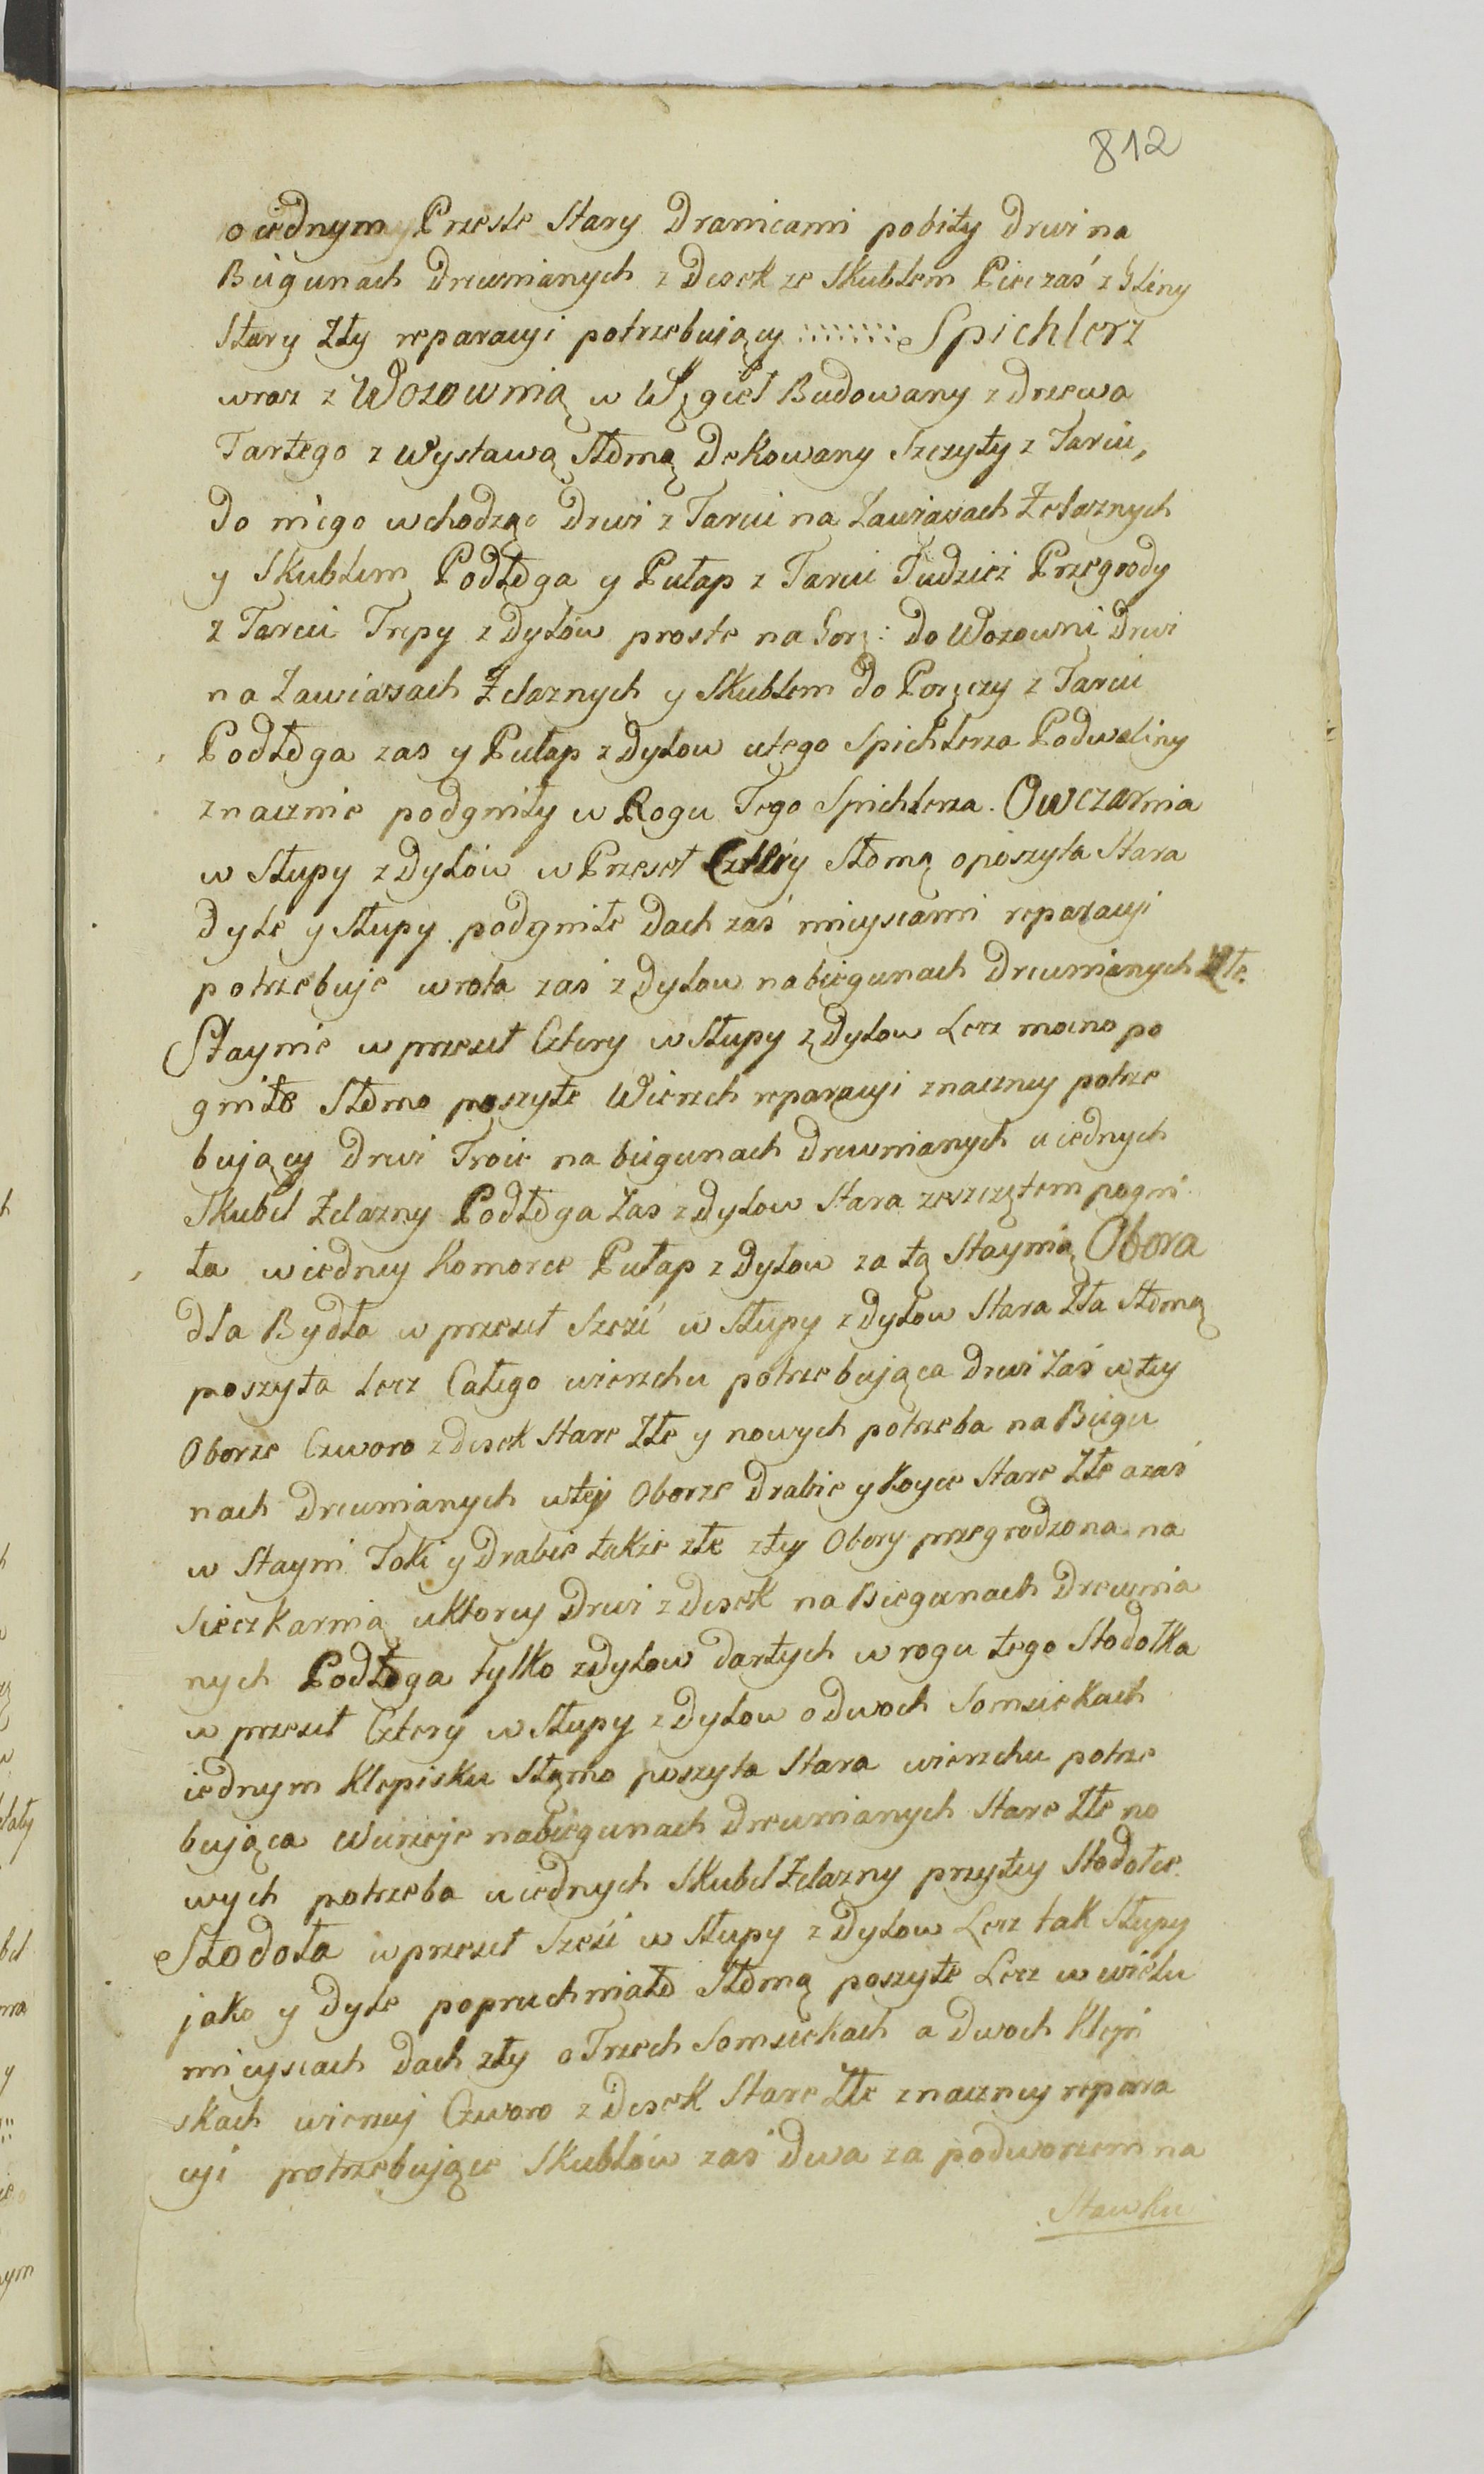 812
o iednym Przesle Stary Dranicami pobity Drwi na
Biegunach Drewnianych z Desek ze Skublem Piec zaś z Gliny
Stary Zły reparacyi potrzebuiący Spichlerz
wraz z Wozownią w Węgieł Budowany z drzewa
Tartego z Wystawą Słomą Dekowany Szczyty z Tarcic,
Do niego wchodząc Drwi z Tarcic na Zawiasach Żelaznych
y Skublem Podłoga y Pułap z Tarcic Tudzież Przegrody
z Tarcic Trepy z Dylów proste na Gorę: Do Wozowni Drwi
na Zawiasach Żelaznych y Skublem do Poręczy z Tarcic
Podłoga zas y Pułap z Dylow utego Spichlerza Podwaliny
znacznie podgniły w Rogu Tego Spichlerza. Owczarnia
w Słupy z Dylów w Przeseł Cztery Słomą oposzyta Stara
Dyle y Słupy podgniłe Dach zaś mieyscami reparacyi
potrzebuje wrota zaś z Dylow na biegunach Drewnianych Złe.
Staynie w przeseł Cztery w Słupy z Dylow Lecz mocno po
gniłe Słomo poszyte Wierzch reparacyi znaczney potrze
bujący Drwi Troie na biegunach Drewnianych u iednych
Skubel Żelazny Podłoga Zas z Dylow Stara ze szczętem pogni
ła w iedney Komorce Pułap z Dylow za tą Staynią Obora
dla Bydła w przeseł Sześć w Słupy z Dylow Stara Zła Słomą
poszyta Lecz Całego wierzchu potrzebująca Drwi Zaś w tey
Oborze Czworo z desek Stare Złe y nowych potrzeba na Biegu
nach Drewnianych w tey Oborze Drabie y Koyce Stare Złe a zaś
w Stayni Żoki y Drabie także złe z tey Obory przegrodzona na
Sieczkarnią u ktorey Drwi z Desek na Biegunach Drewnia
nych Podłoga tylko z dylow dartych w rogu tego Stodołka
w przeseł Cztery w Słupy z Dylow o dwoch Somsiekach
iednym Klepisku Słomo poszyta Stara wierzchu potrze
bująca Wierzeje na biegunach Drewnianych Stare Złe no
wych potrzeba u iednych Skubel Żelazny przy tey Stodołce
Stodoła w przeseł Sześć w Słupy z Dylow Lecz tak Słupy
jako y Dyle popruchniałe Słomą poszyte Lecz w wielu
mieyscach Dach zły o Trzech Somsiekach a Dwoch Klepi
skach wierzej Czworo z Desek Stare Złe znaczney repara
cyi potrzebujące Skublów zaś Dwa za podworzem na
Stawku